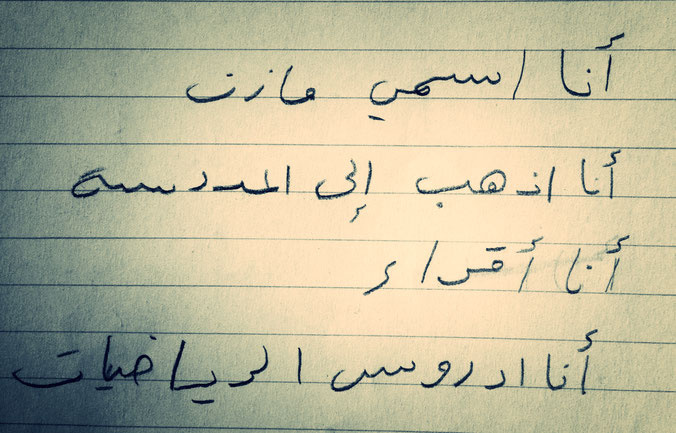 أنا اسمي مازن
أنا اذهب إلى المدرسة
أنا أقراء
أنا ادروس الرياضيات